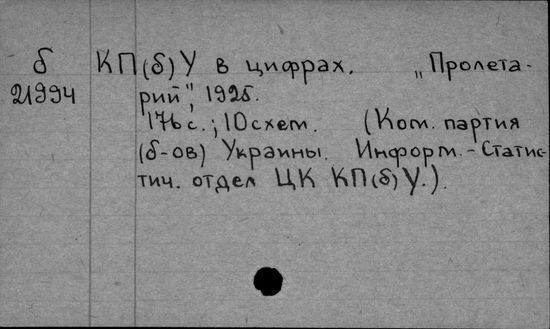 б КП(б)У в цифрах. „Пролета-
21994 рий", 1925.
176 с.; 10 схем. (Ком. партия
(б-ов) Украины. Информ.-Статис-
тич. отдел ЦК КП(б)У.).